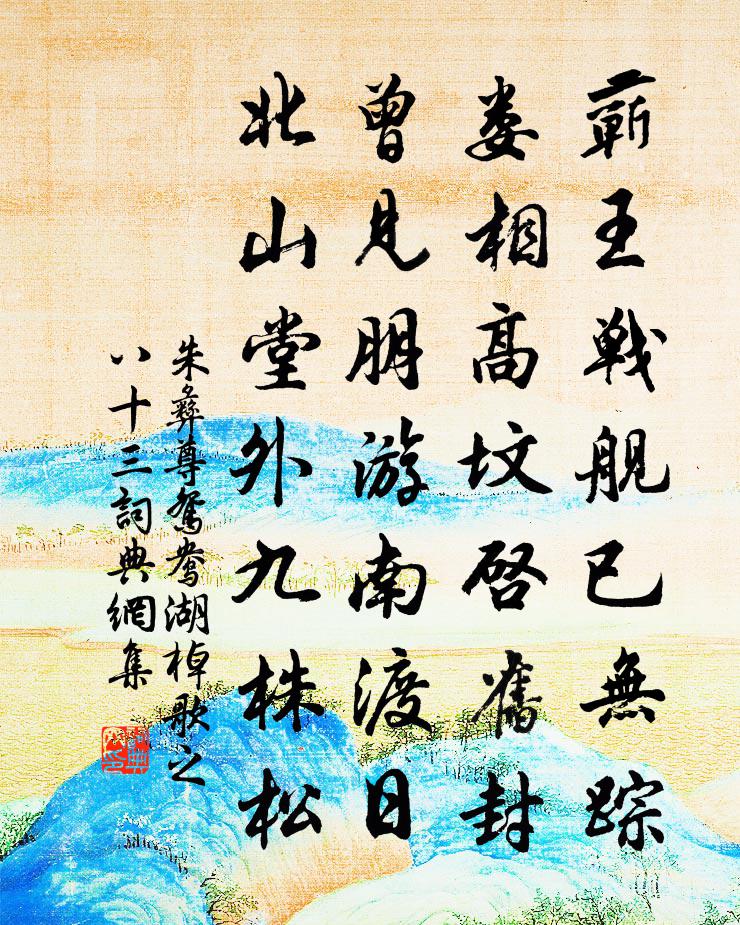 蕲王戦舰已無踪
娄相高坟启舊封
曾见朋游南渡日
北山堂外九株松
朱彝尊鸳鸯湖棹歌之
八十三詞典網集